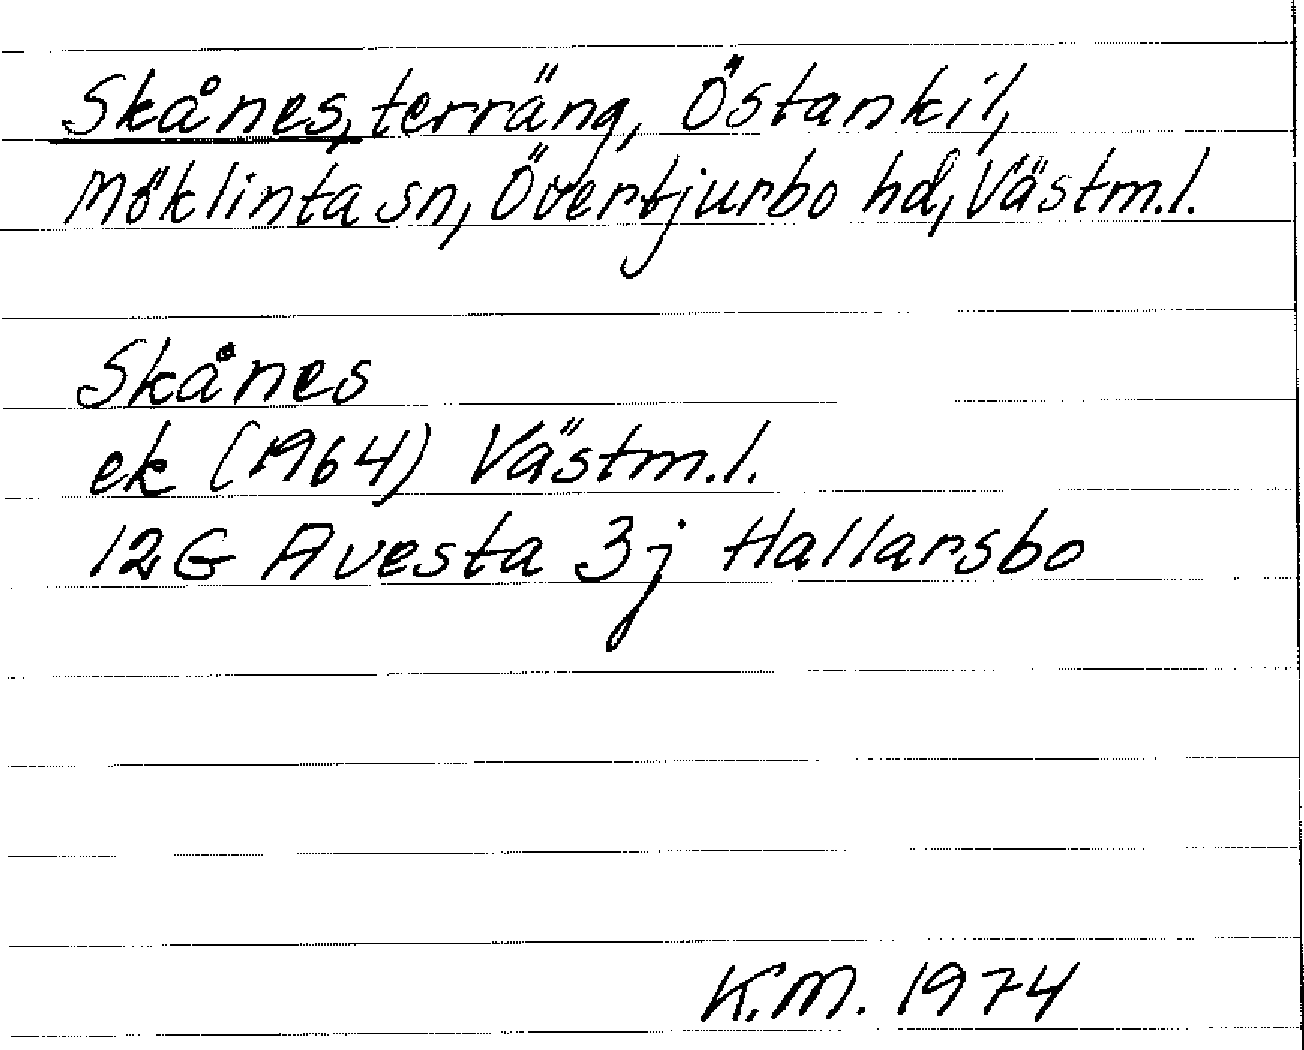 Skånes, terräng, Östankil,
Möklinta sn, Övertjurbo hd, Västm.l.
Skånes
ek (1964) Västm.l.
12G Avesta 3j Hallarsbo
K.M. 1974